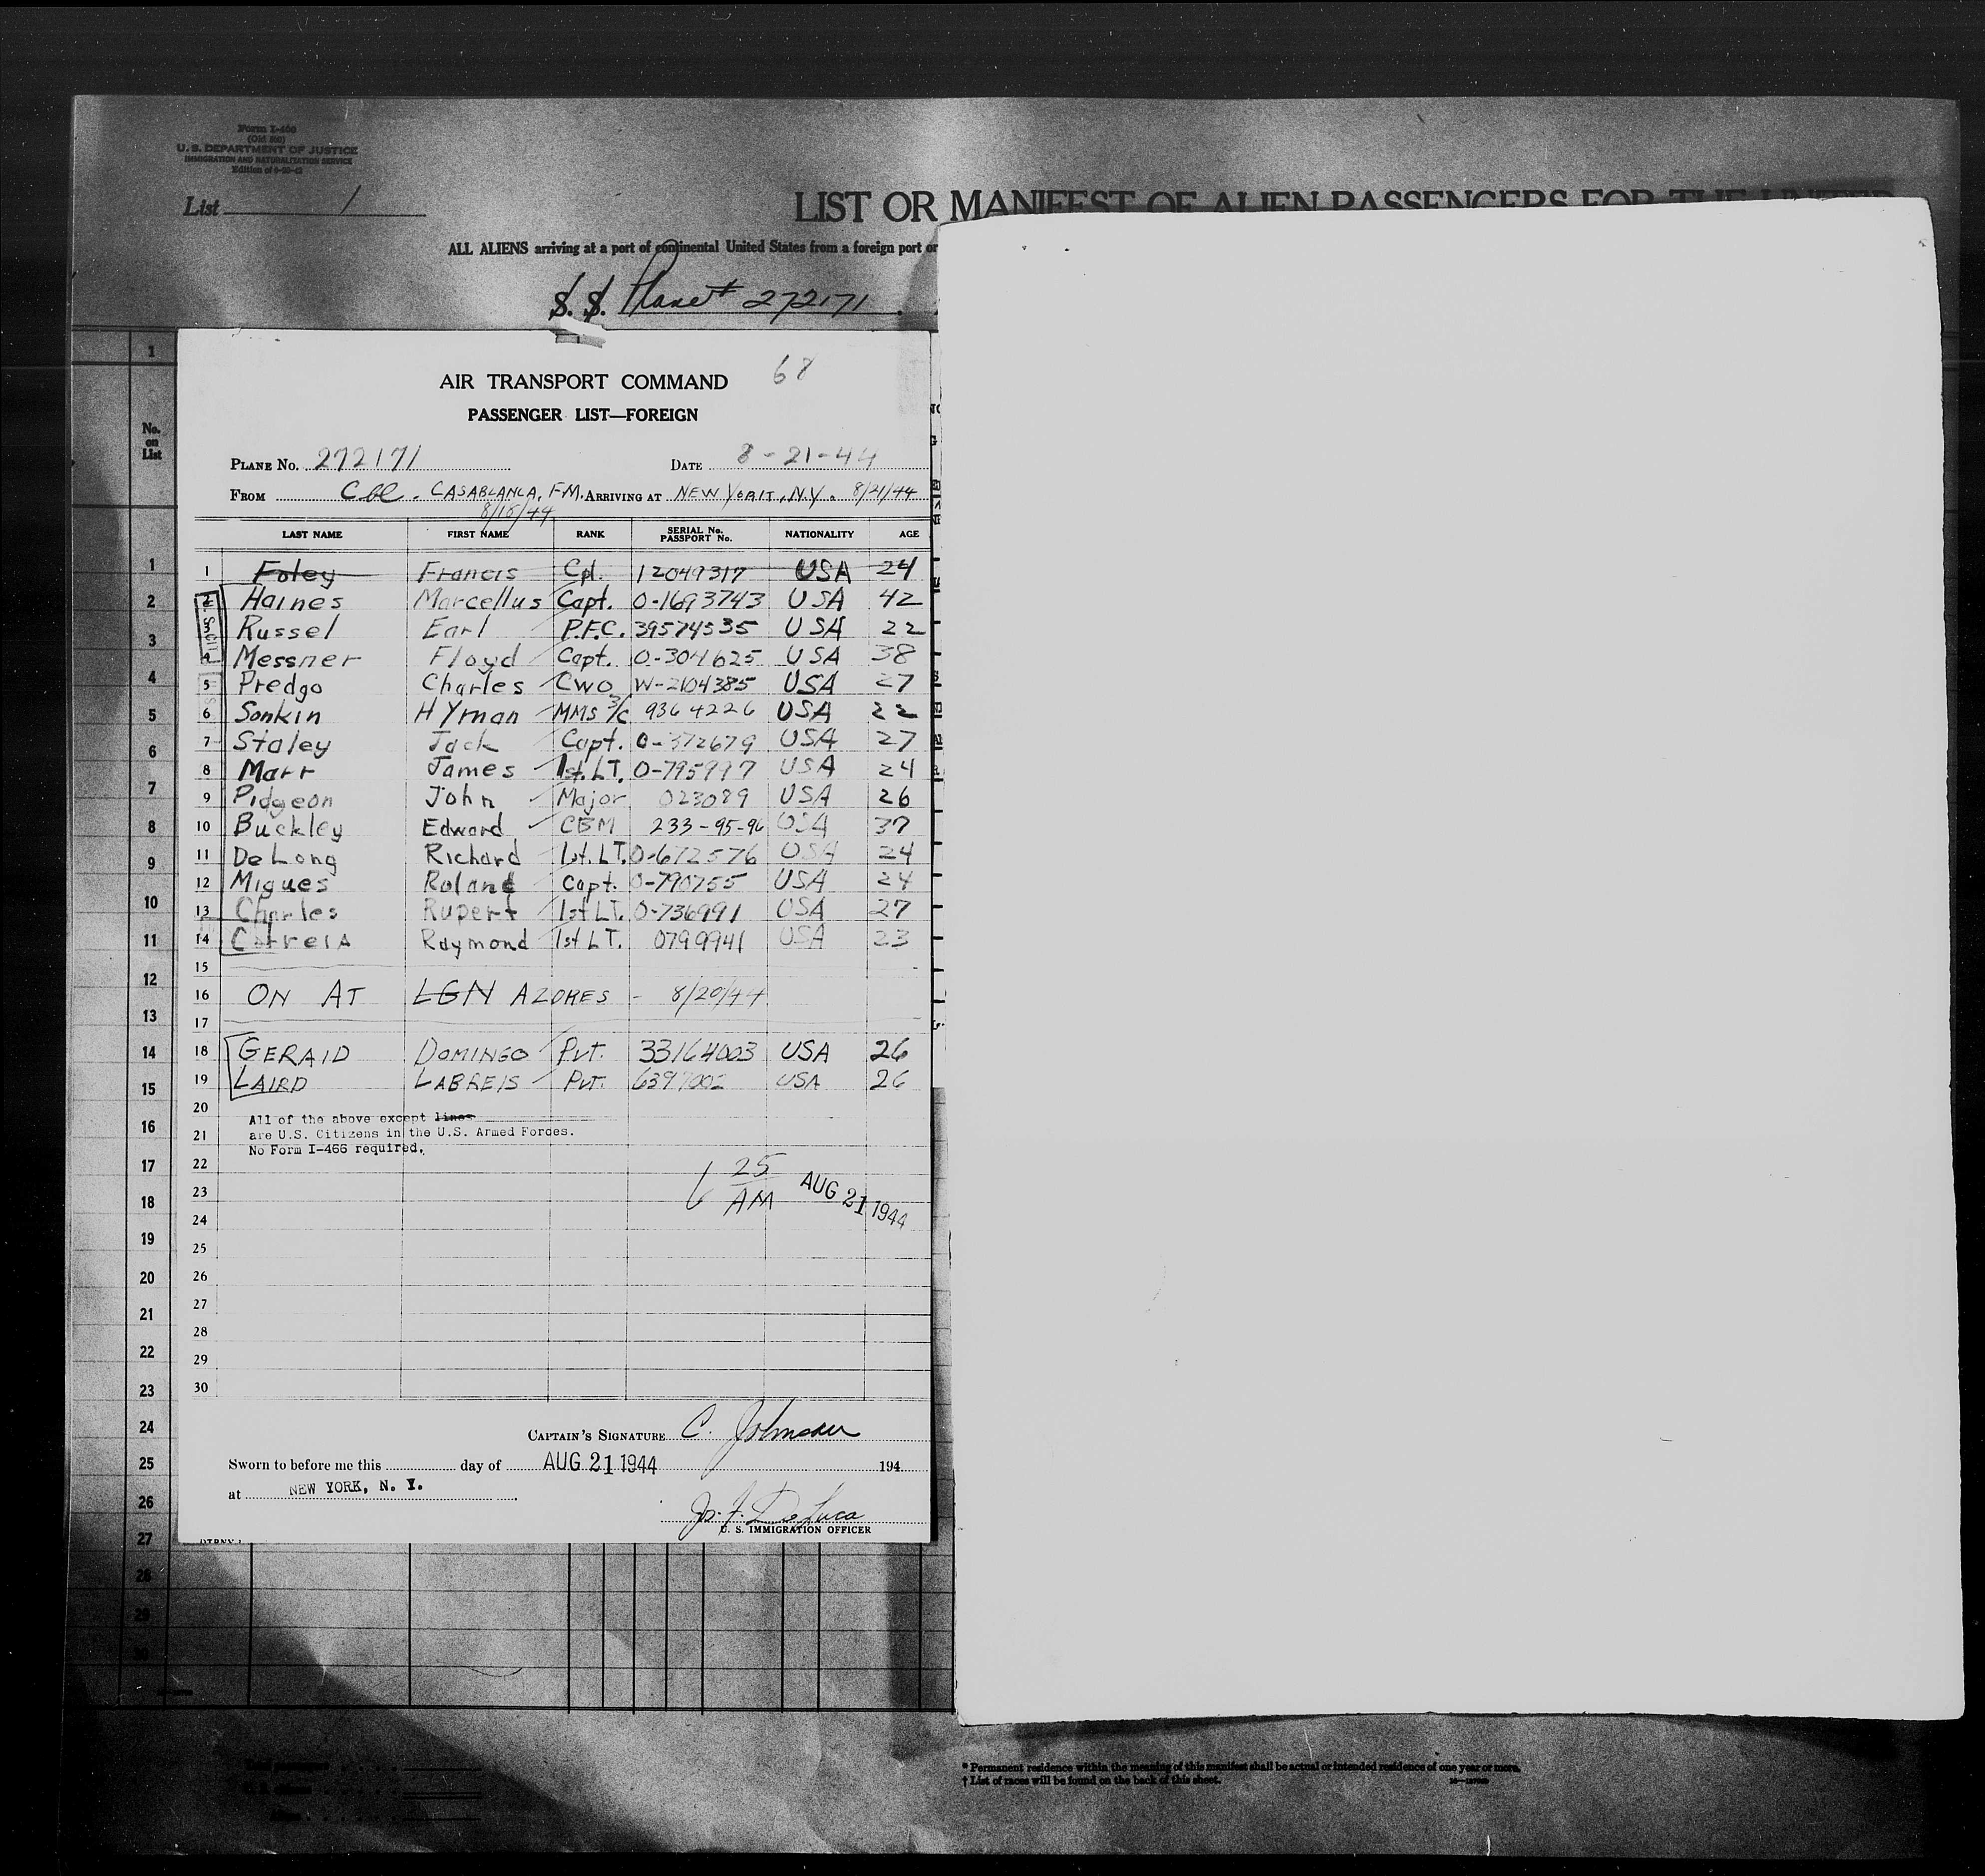 Form I-466
(Old 500)
U. S. DEPARTMENT OF JUSTICE
IMMIGRATION AND NATURALIZATION SERVICE
List 1
LIST OR MANIFEST OF ALIEN PASSENGERS FOR THE UNITED
ALL ALIENS arriving at a port of continental United States from a foreign port or
S. S. Plane # 272171
AIR TRANSPORT COMMAND 68
PASSENGER LIST—FOREIGN
PLANE No. 272171 DATE 8-21-44
FROM CASABLANCA, F.M. ARRIVING AT NEW YORK, N.Y. 8/21/44
LAST NAME FIRST NAME RANK SERIAL No. PASSPORT No. NATIONALITY AGE
1 Foley Francis Cpl. 12049317 USA 24
2 Haines Marcellus Capt. O-1693743 USA 42
3 Russel Earl P.F.C. 39574535 USA 22
4 Messner Floyd Capt. O-304625 USA 38
5 Predgo Charles CWO W-2104385 USA 27
6 Sonkin HYman MMS 3/c 9364226 USA 22
7 Staley Jack Capt. O-372679 USA 27
8 Marr James 1st. LT. O-795997 USA 24
9 Pidgeon John Major 023089 USA 26
10 Buckley Edward CBM 233-95-96 USA 37
11 DeLong Richard 1st. LT. O-672576 USA 24
12 Migues Roland Capt. O-790755 USA 24
13 Charles Rupert 1st LT. O-736991 USA 27
14 Raymond 1st LT. 0799941 USA 23
15
16 ON AT LGN AZORES - 8/20/44
17
18 GERAID DOMINGO Pvt. 33164003 USA 26
19 LAIRD LABREIS Pvt. 6397002 USA 26
20
All of the above except lines
21 are U.S. Citizens in the U.S. Armed Forces.
No Form I-466 required.
22
6 25 AM AUG 21 1944
23
24
25
26
27
28
29
30
CAPTAIN'S SIGNATURE C. Johnson
Sworn to before me this day of AUG 21 1944 194
at NEW YORK, N. Y.
Jos. F. De Luca
U. S. IMMIGRATION OFFICER
No. on List
1
2
3
4
5
6
7
8
9
10
11
12
13
14
15
16
17
18
19
20
21
22
23
24
25
26
27
28
29
30
* Permanent residence within the meaning of this manifest shall be actual or intended residence of one year or more.
† List of races will be found on the back of this sheet.